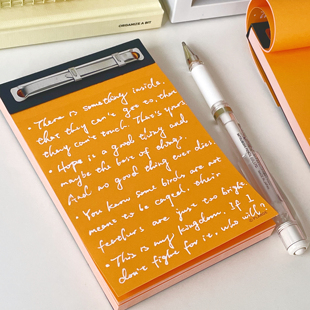 ORGANIZE & MIT
• There is something inside,
that they can't get to, that
they can't touch. That's yours
• Hope is a good thing and
maybe the best of thing.
And no good thing ever dies.
• You know some birds are not
meant to be caged, their
feathers are just too bright.
• This is my kingdom. If I
don't fight for it, who will?